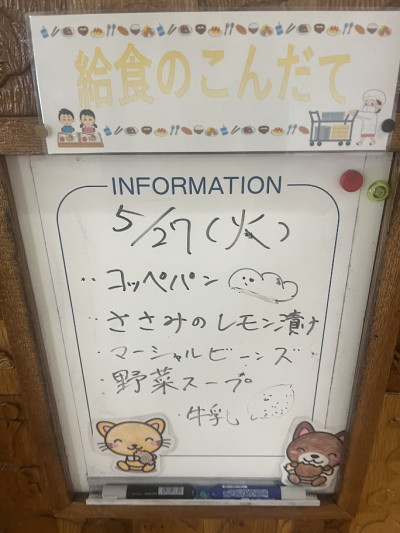 給食のこんだて
INFORMATION
5/27(火)
・コッペパン
・ささみのレモン漬け
・マーシャルビーンズ
・野菜スープ
・牛乳